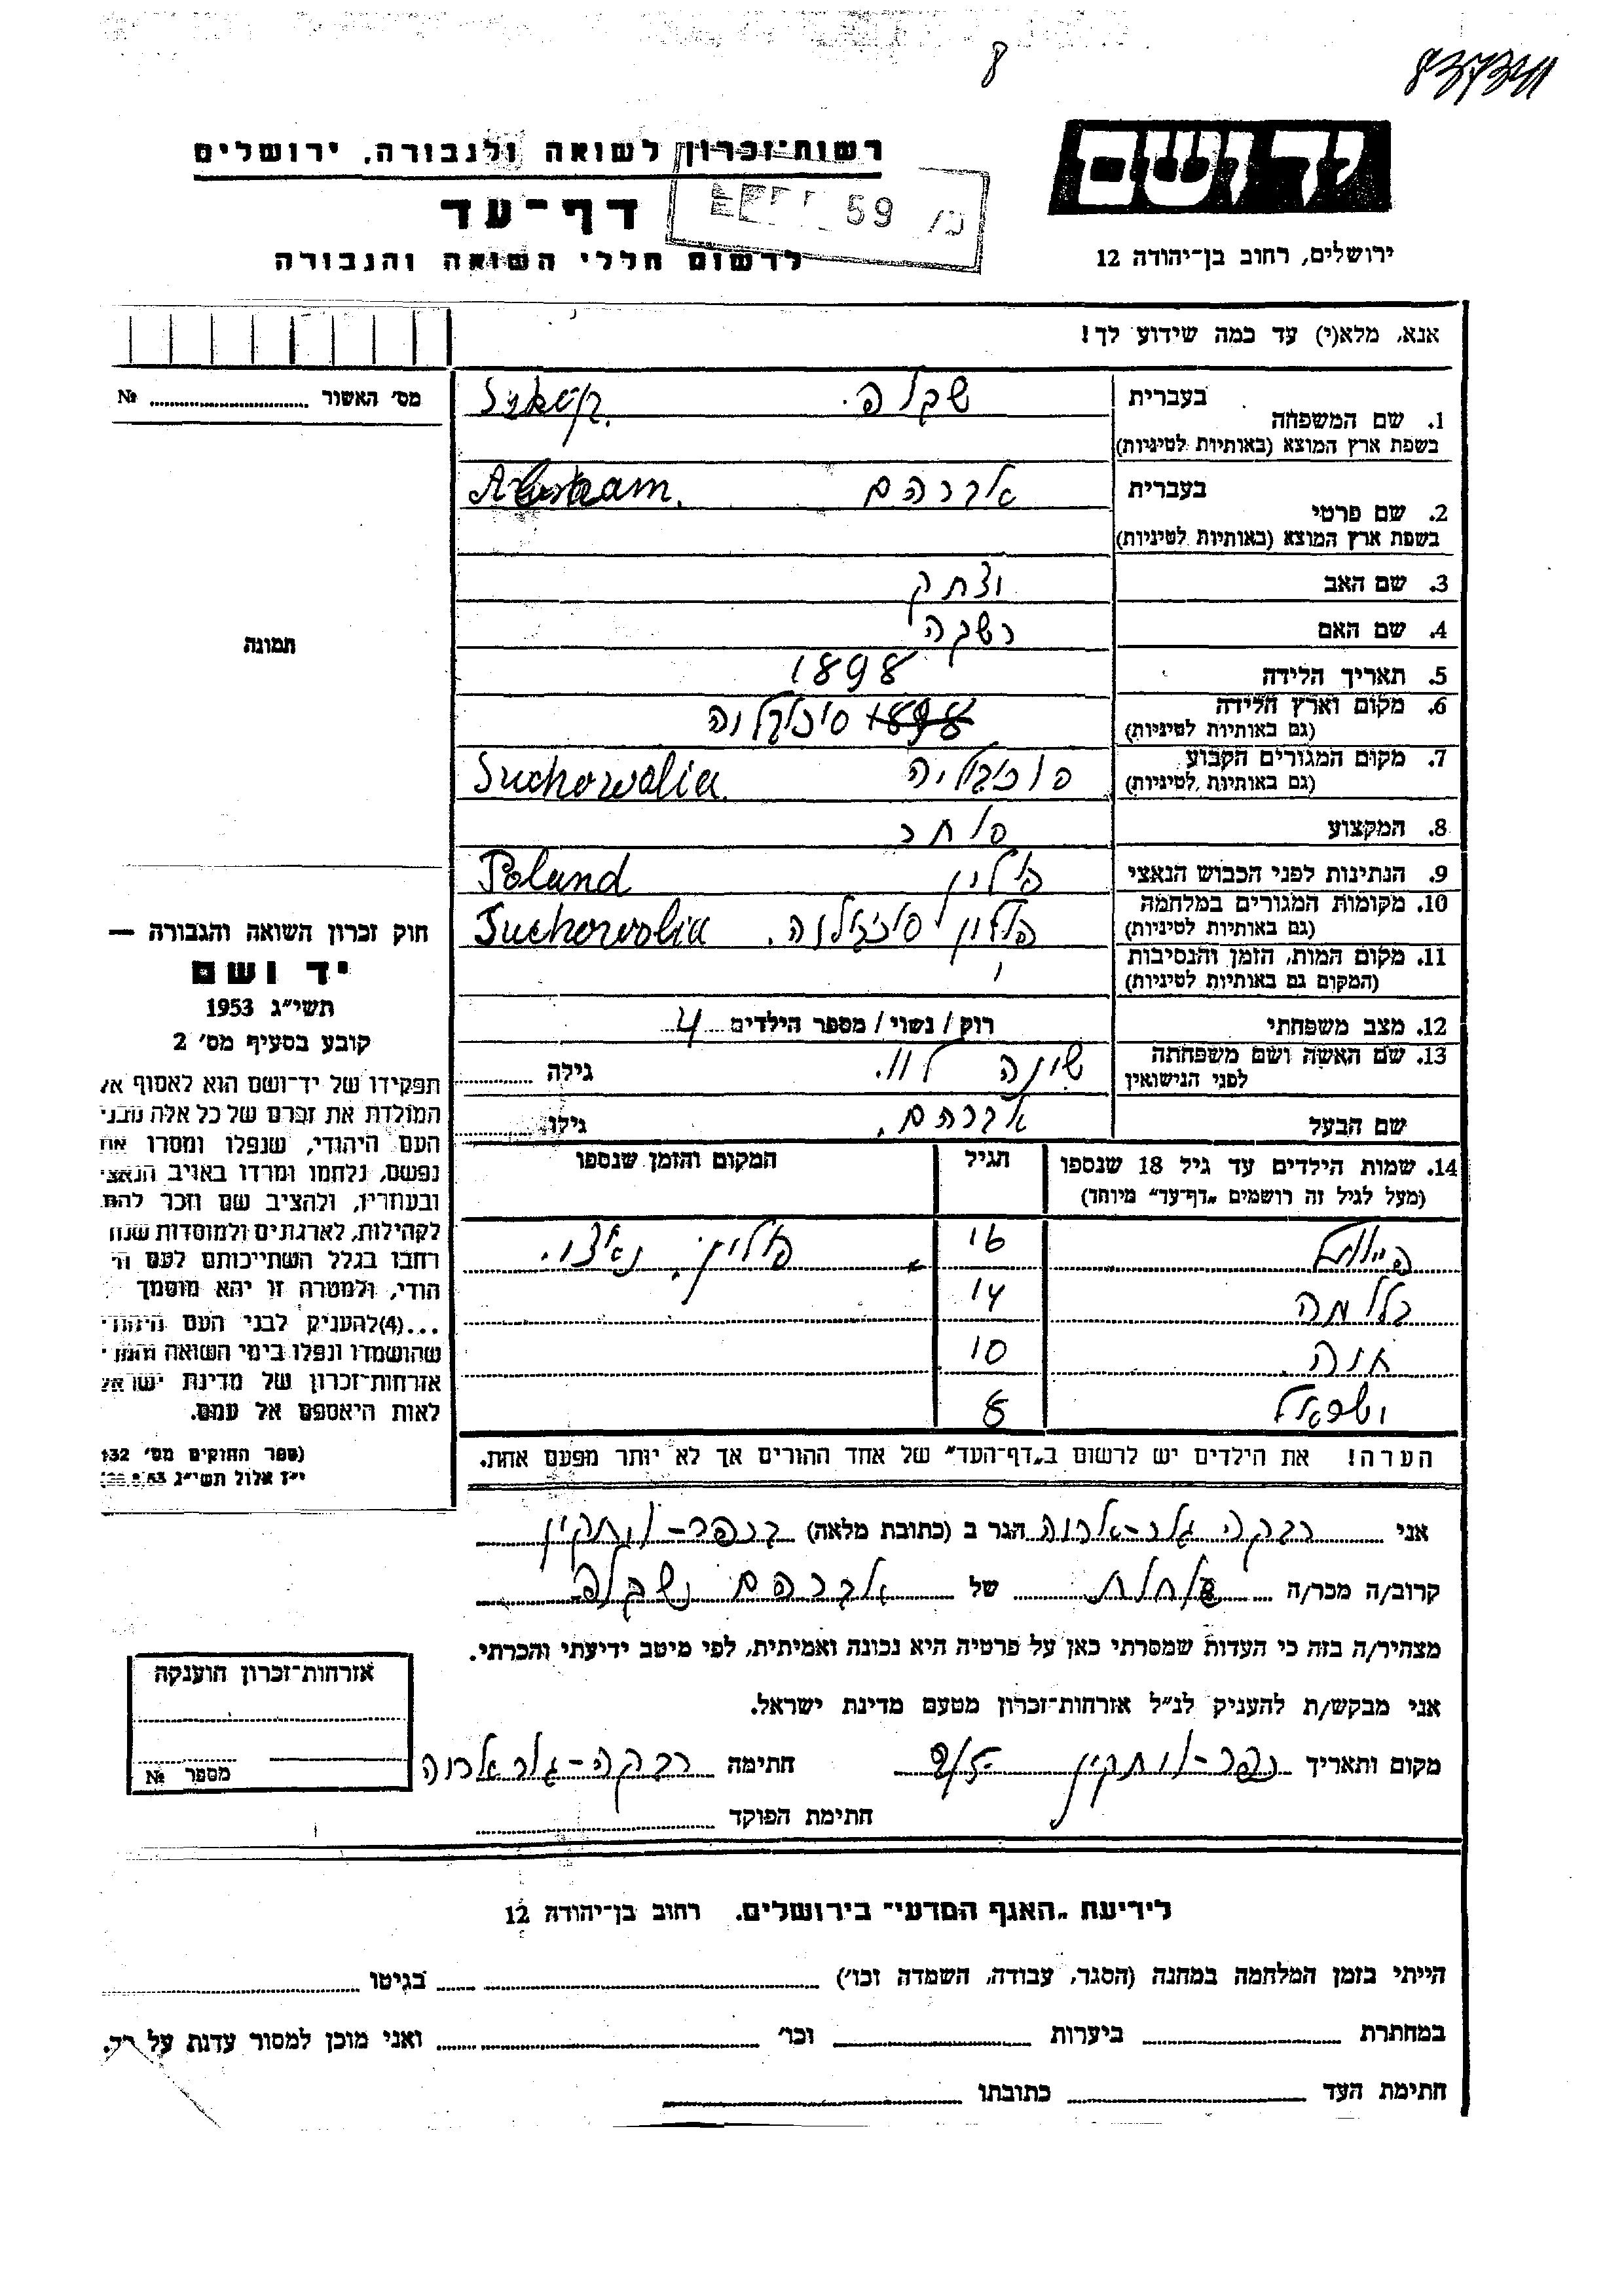 8
רשות־זכרון לשואה ולגבורה, ירושלים
יד ושם
דף־עד
59
לרשום חללי השואה והגבורה
ירושלים, רחוב בן־יהודה 12
אנא, מלא(י) עד כמה שידוע לך!
מס׳ האשור № 
1. שם המשפחה
בעברית
בשפת ארץ המוצא (באותיות לטיניות)
2. שם פרטי
בעברית אברהם Abraham.
בשפת ארץ המוצא (באותיות לטיניות)
3. שם האב יצחק
4. שם האם רבקה
5. תאריך הלידה 1898
6. מקום וארץ הלידה
(גם באותיות לטיניות)
7. מקום המגורים הקבוע Suchowolia
(גם באותיות לטיניות)
8. המקצוע סוחר
9. הנתינות לפני הכבוש הנאצי פולין Poland
10. מקומות המגורים במלחמה פולין Suchowolia
(גם באותיות לטיניות)
11. מקום המות, הזמן והנסיבות
(המקום גם באותיות לטיניות)
12. מצב משפחתי רוק/נשוי/מספר הילדים 4
13. שם האשה ושם משפחתה לפני הנישואין גילה
שם הבעל אברהם. גילו
תמונה
חוק זכרון השואה והגבורה —
יד ושם
תשי״ג 1953
קובע בסעיף מס׳ 2
תפקידו של יד־ושם הוא לאסוף אל
המולדת את זכרם של כל אלה מבני
העם היהודי, שנפלו ומסרו את
נפשם, נלחמו ומרדו באויב הנאצי
ובעוזריו, ולהציב שם וזכר להם,
לקהילות, לארגונים ולמוסדות שנח
רחבו בגלל השתייכותם לעם הי
הודי, ולמטרה זו יהא מוסמך
...(4)להעניק לבני העם היהודי
שהושמדו ונפלו בימי השואה והמרי
אזרחות־זכרון של מדינת ישראל
לאות היאספם אל עמם.
(ספר החוקים מס׳ 132
י״ז אלול תשי״ג
14. שמות הילדים עד גיל 18 שנספו הגיל המקום והזמן שנספו
(מעל לגיל זה רושמים „דף־עד״ מיוחד)
16 פולין.
14
10
ישראל 8
הערה! את הילדים יש לרשום ב„דף־העד״ של אחד ההורים אך לא יותר מפעם אחת.
אני רבקה הגר ב (כתובת מלאה) בכפר־ויתקין
קרוב/ה מכר/ה של אברהם
מצהיר/ה בזה כי העדות שמסרתי כאן על פרטיה היא נכונה ואמיתית, לפי מיטב ידיעתי והכרתי.
אני מבקש/ת להעניק לנ״ל אזרחות־זכרון מטעם מדינת ישראל.
מקום ותאריך כפר־ויתקין חתימה רבקה
חתימת הפוקד
אזרחות־זכרון הוענקה
מספר №
לידיעת „האגף המדעי״ בירושלים. רחוב בן־יהודה 12
הייתי בזמן המלחמה במחנה (הסגר, עבודה, השמדה וכו׳) בגיטו
במחתרת ביערות וכו׳ ואני מוכן למסור עדות על
חתימת העד כתובתו